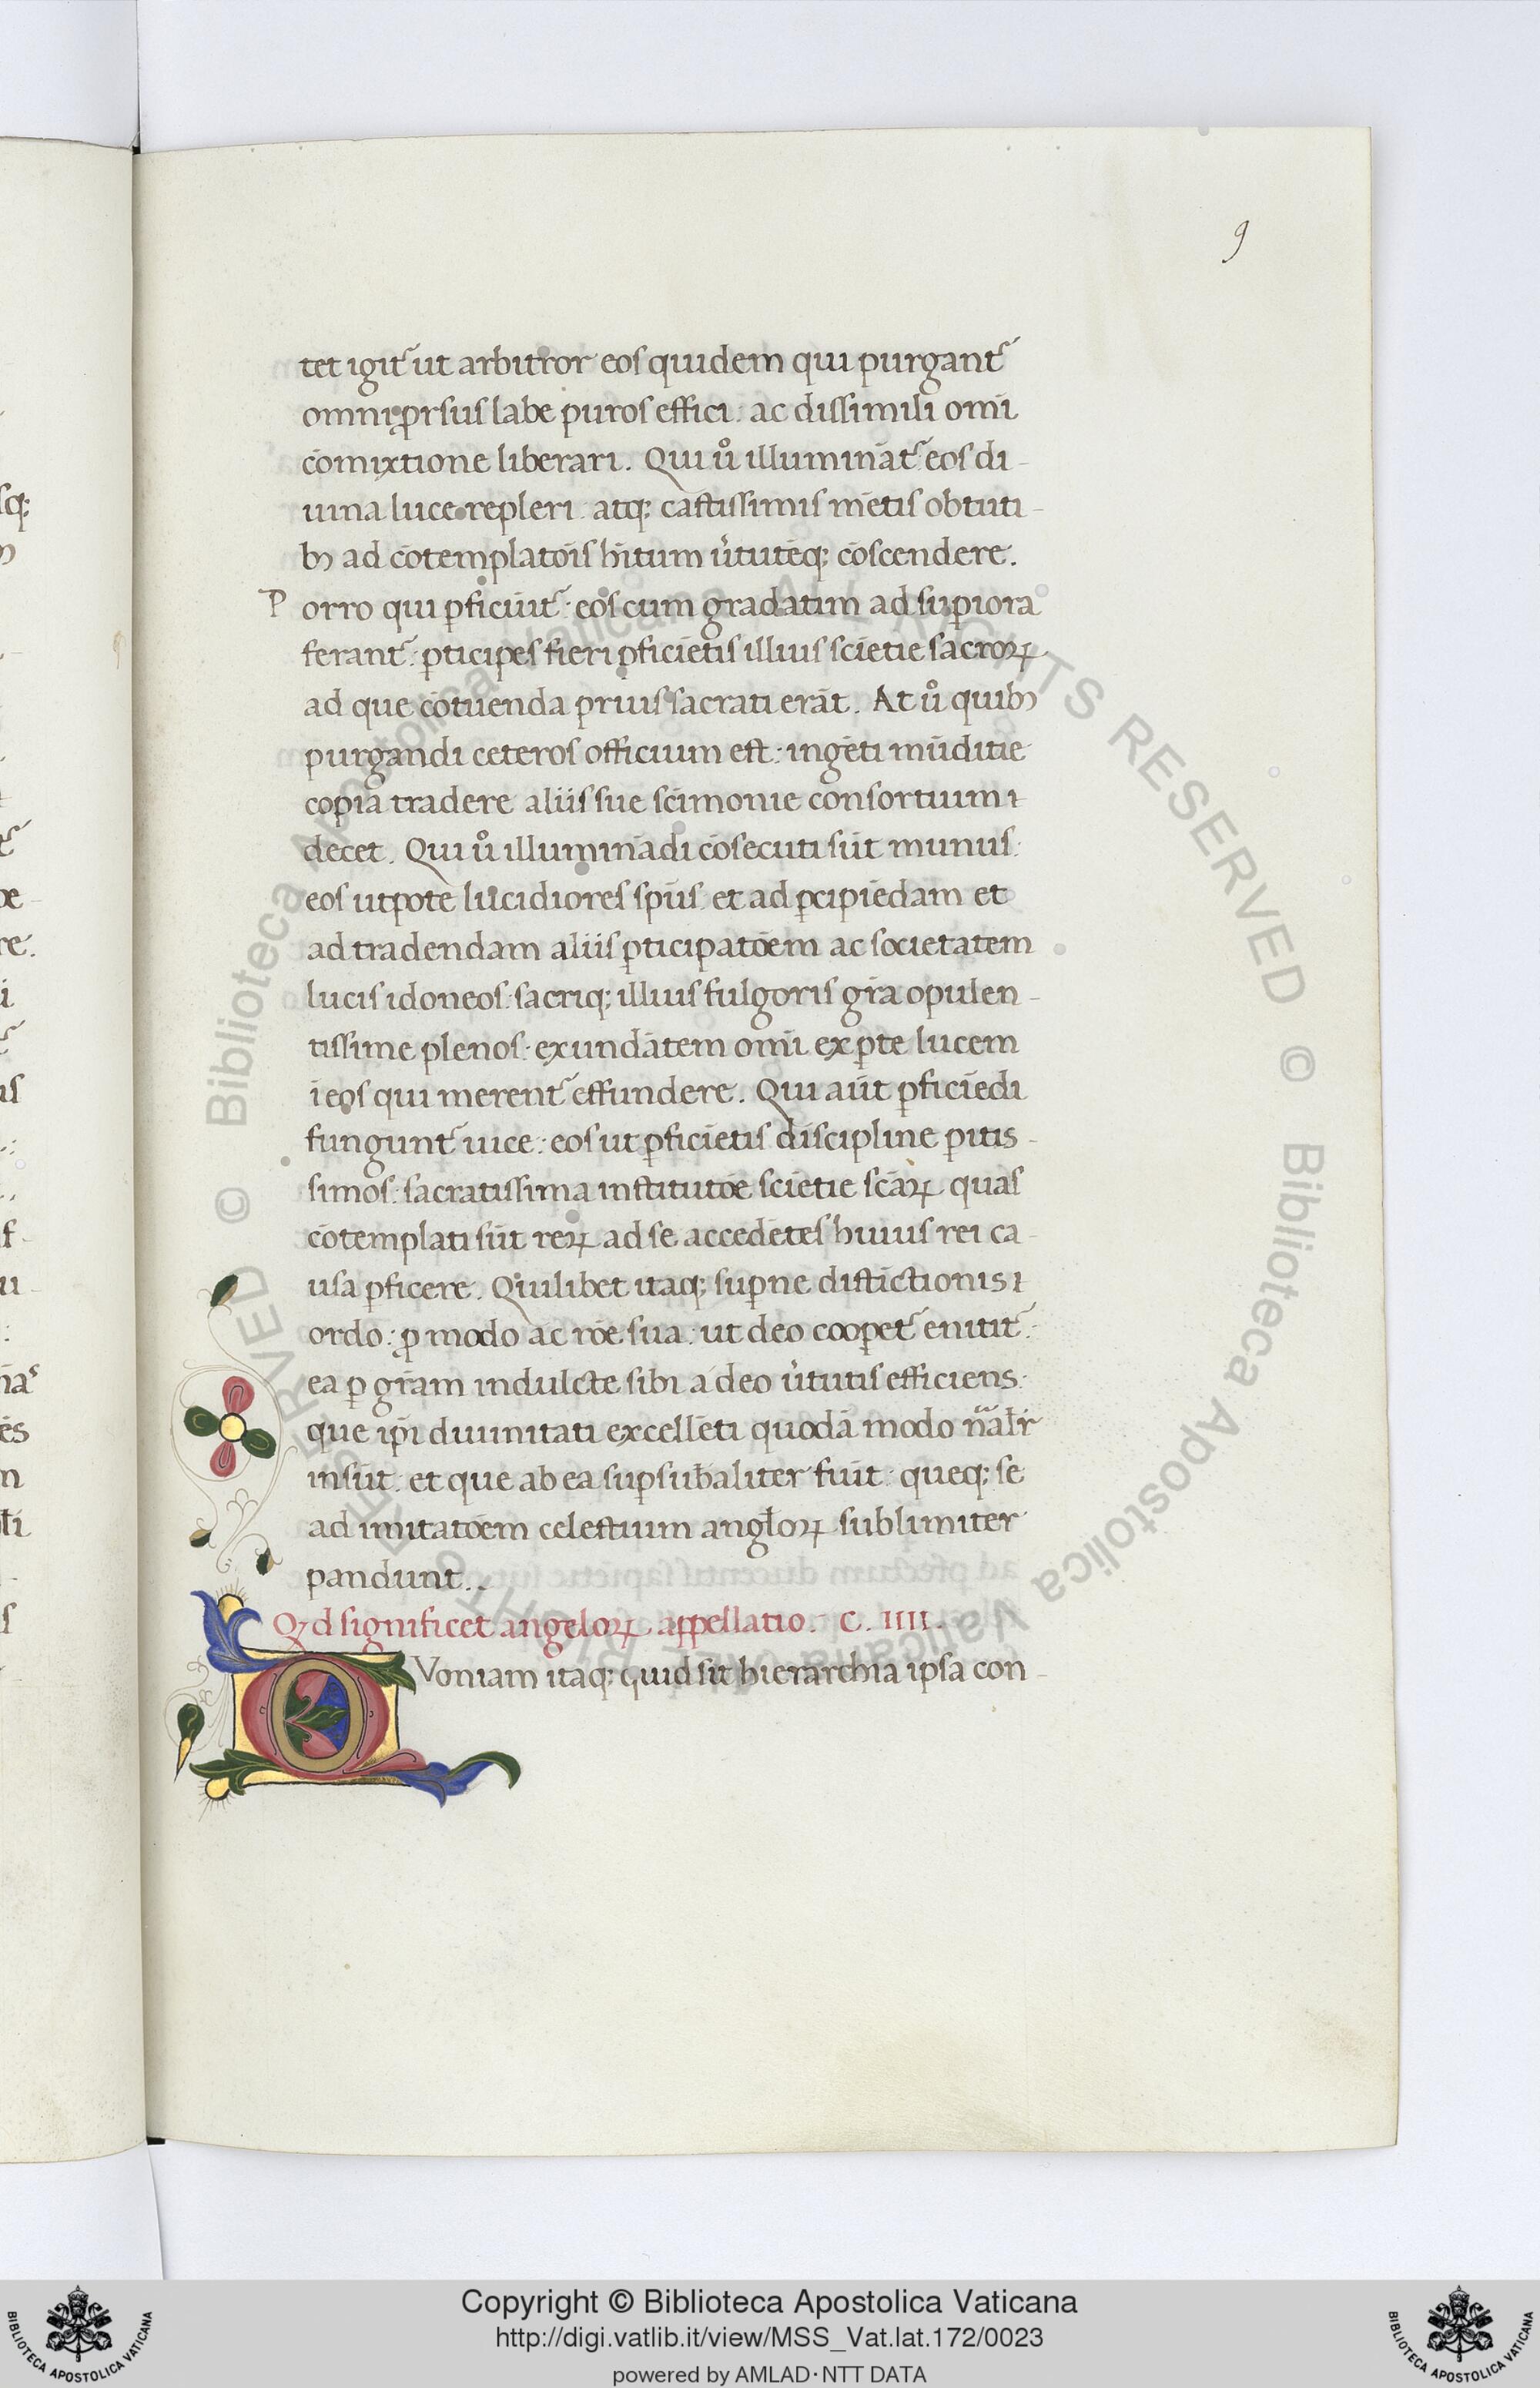 9
tet igit᷑ ut arbitror eos quidem qui purgant᷑
omni ꝓrsus labe puros effici: ac dissimili om̄i
cōmixtione liberari. Qui u̾o illuminãt᷑ eos di-
uina luce repleri: atq; castissimis mẽtis obtuti-
bꝫ ad cõtemplatõis hĩtum u̾tutẽq; cõscendere.
Porro qui ꝑficiũt᷑: eos cum gradatim ad suꝑiora
ferant᷑: ꝑticipes fieri ꝑficiẽtis illius sciẽtie sacroꝝ
ad que cõtuenda prius sacrati erãt. At u̾o quibꝫ
purgandi ceteros officium est: ingẽti mũditie
copia tradere aliis sue scĩmonie consortium ı
decet. Qui u̾o illuminãdi cõsecuti sũt munus:
eos utpote lucidiores spũs et ad ꝑcipiẽdam et
ad tradendam aliis ꝑticipatõem ac societatem
lucis idoneos: sacriq; illius fulgoris gr̃a opulen-
tissime plenos: exundãtem om̃i ex ꝑte lucem
ĩ eos qui merent᷑ effundere. Qui aũt ꝑficiẽdi
fungunt᷑ uice: eos ut ꝑficiẽtis discipline ꝑitis-
simos: sacratissima institutõe sciẽtie scãꝝ quas
cõtemplati sũt reꝝ ad se accedẽtes huius rei ca-
usa ꝑficere. Quilibet itaq; suꝑne distictionis ı
ordo: ꝓ modo ac rõe sua: ut deo cooꝑet᷑ enitit᷑:
ea ꝑ gr̃am indulcte sibi a deo u̾tutis efficiens:
que ip̃i diuinitati excellẽti quodã modo nãalr̃
insũt: et que ab ea suꝑsub̃aliter fiũt: queq; se
ad imitatõem celestium angl̃oꝝ sublimiter
pandunt.
Qꝫd significet angeloꝝ appellatio. C. IIII.
QVoniam itaq; quid sit hierarchia ipsa con-
Copyright © Biblioteca Apostolica Vaticana
http://digi.vatlib.it/view/MSS_Vat.lat.172/0023
powered by AMLAD·NTT DATA
BIBLIOTECA APOSTOLICA VATICANA
BIBLIOTECA APOSTOLICA VATICANA